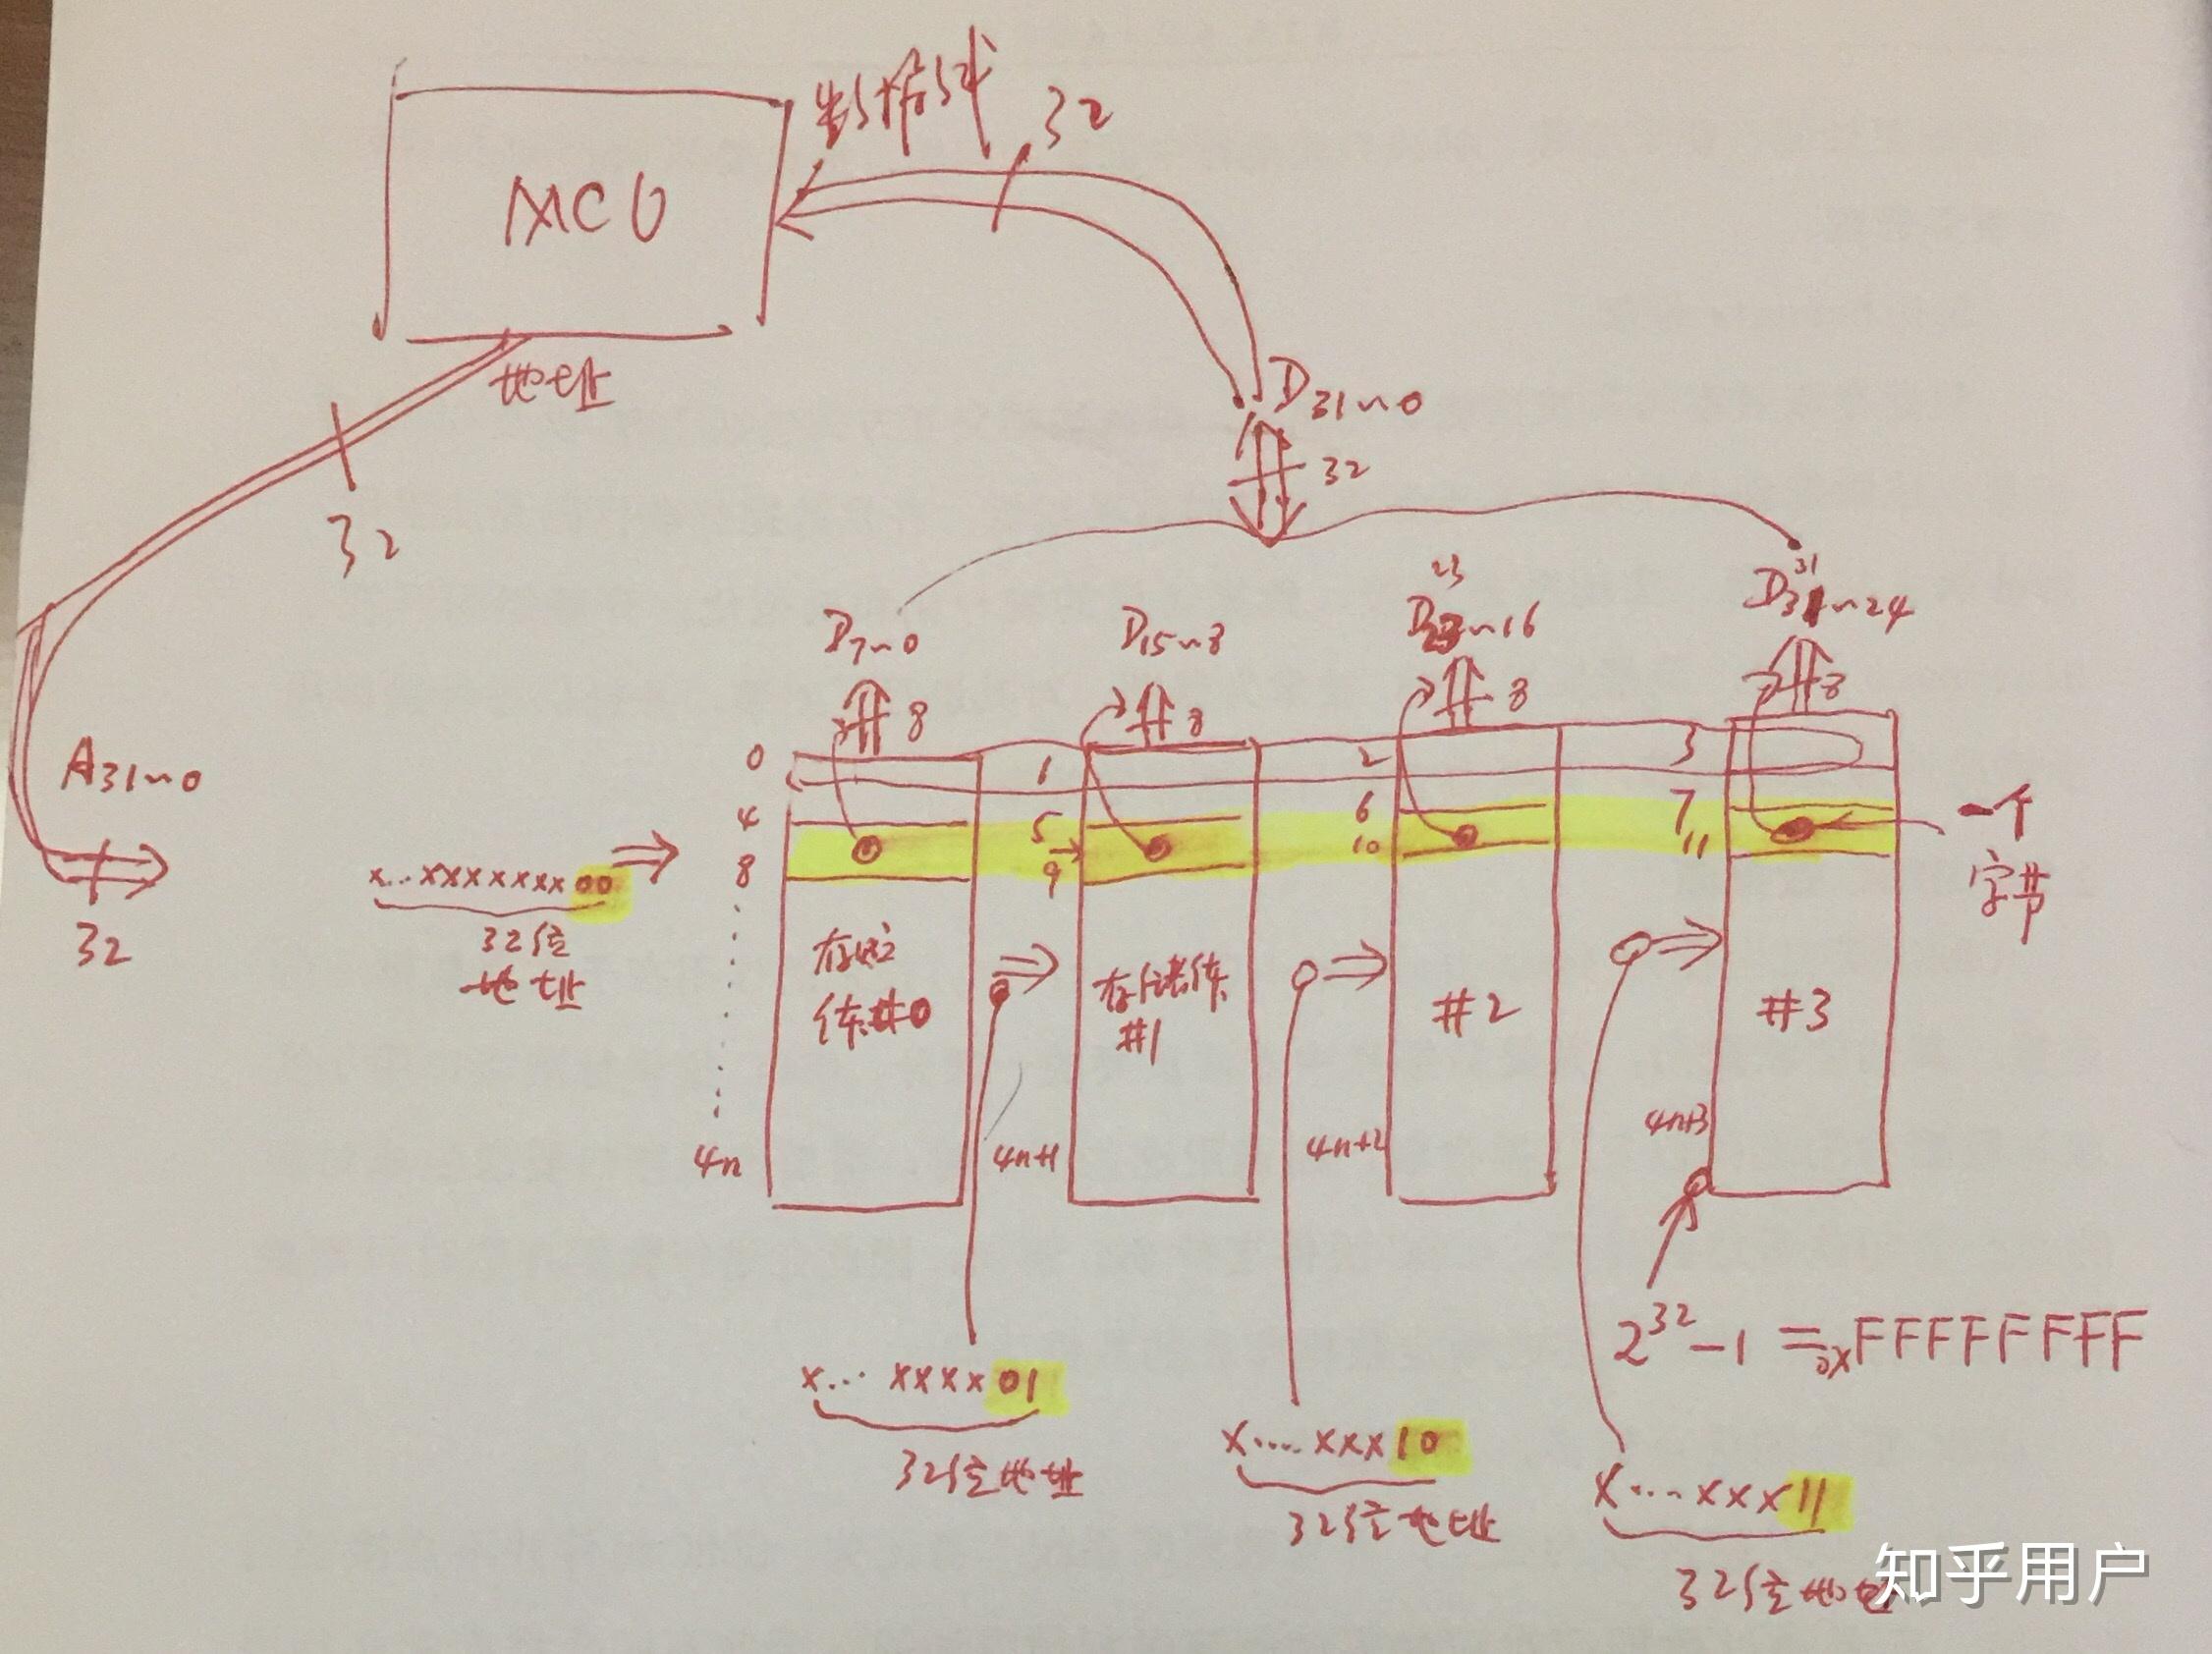 数据线 32
MCU
地址
32
D31~0
32
23
31
D7~0 D15~8 D23~16 D31~24
8 8 8 8
A31~0
32
0 1 2 3
4 5 6 7
8 9 10 11
一个
字节
x...xxxxxxxx00
32位
地址
存储
体#0
存储体
#1
#2
#3
4n 4n+1 4n+2 4n+3
2³²-1 = 0xFFFFFFFF
x... xxxx01
32位地址
x.... xxx10
32位地址
x....xxx11
32位地址
知乎用户